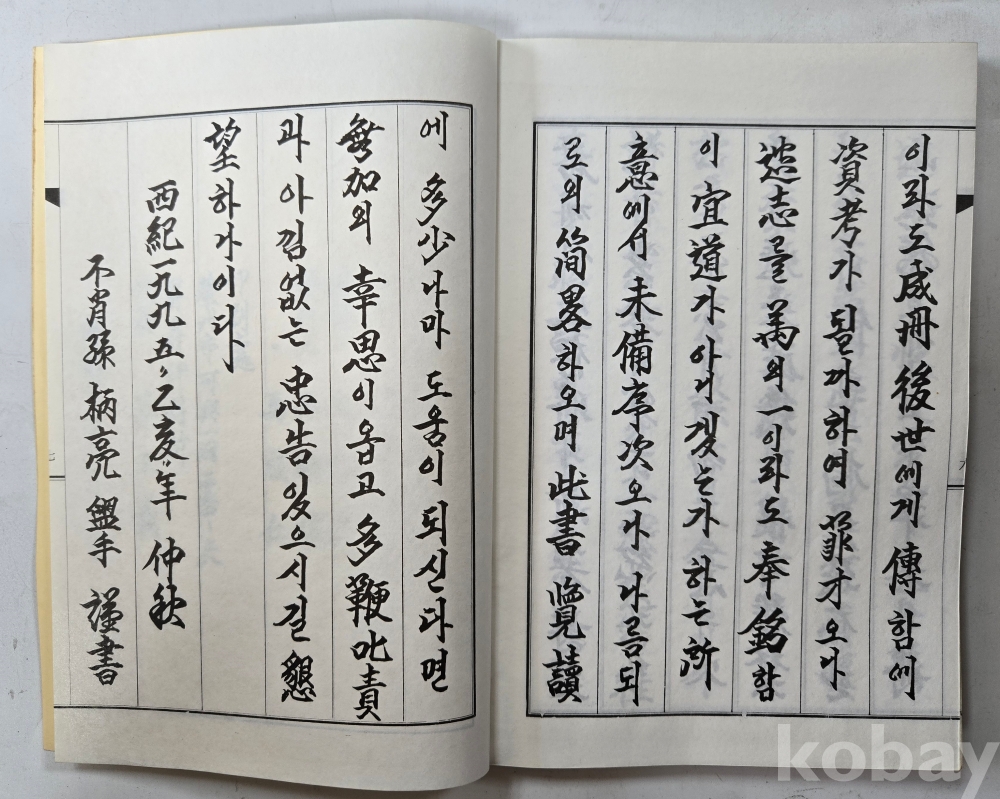 이라도 成冊 後世에게 傳함에
資考가 될까하여 菲才오나
遺志를 萬의 一이라도 奉銘함
이 宜道가 아니겠는가 하는 所
意에서 未備序次오나 나름되
로의 简畧하오며 此書 覽讀
에 多少나마 도움이 되신다면
無加의 幸思이옵고 多鞭叱責
과 아낌없는 忠告있으시길 懇
望하나이다
西紀一九九五, 乙亥年 仲秋
不肖孫 柄亮 盥手 謹書
kobay